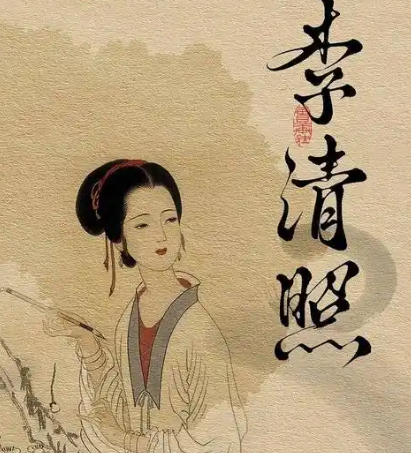 李清照